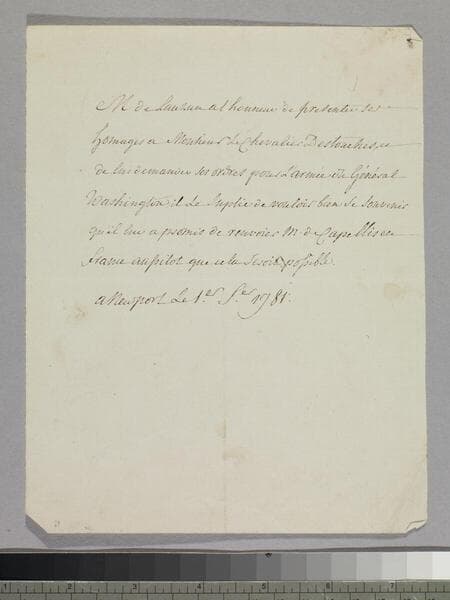 M. de Lauzun a l honneur de presenter ses
homages a Monsieur Le Chevalier Destouches, et
de lui demander ses ordres pour L'armée du Général
Washington, il Le Suplie de vouloir bien Se Souvenir
qu'il lui a promis de renvoier M. de Capellis en
france aussitot que cela Seroit possible.
a Newport Le 1.er f.er 1781.
1 2 3 4 5 6 7